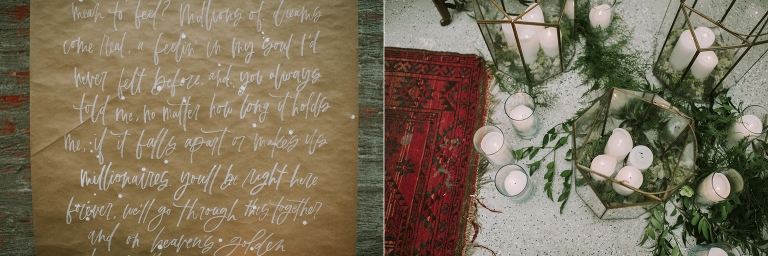 mean to feel? Millions of dreams
come real, a feelin in my soul I'd
never felt before and you always
told me, no matter how long it holds
me, if it falls apart or makes us
millionaires you'll be right here
forever. we'll go through this together
and on heavens golden